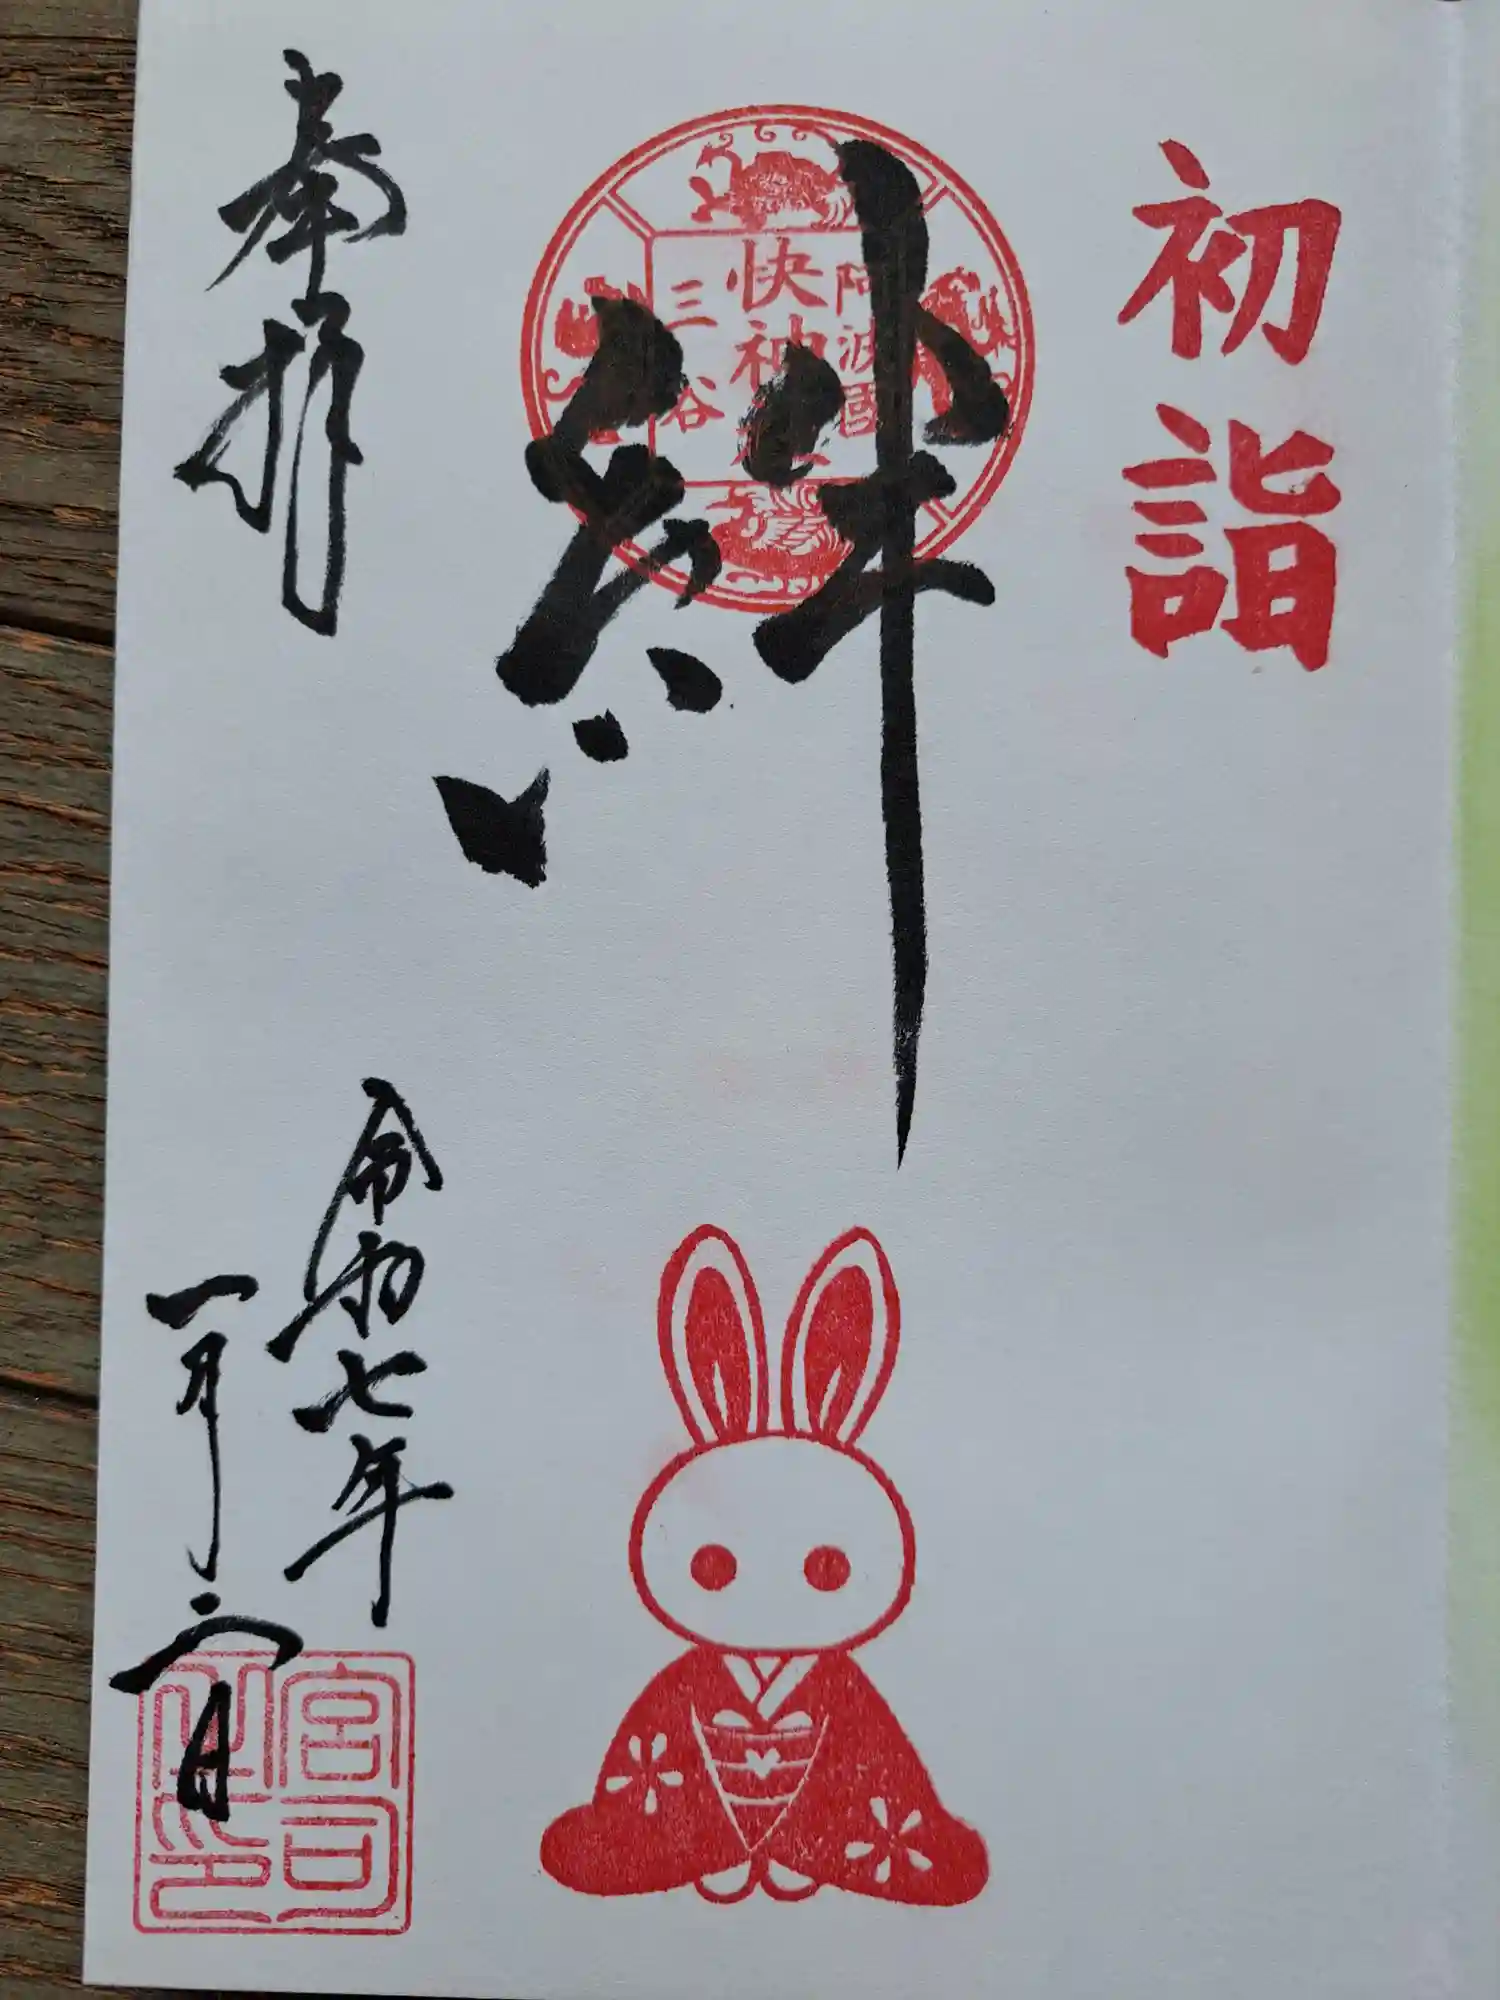 初詣
絆
阿波國
快神社
三谷
奉拝
令和七年
一月六日
宮司之印